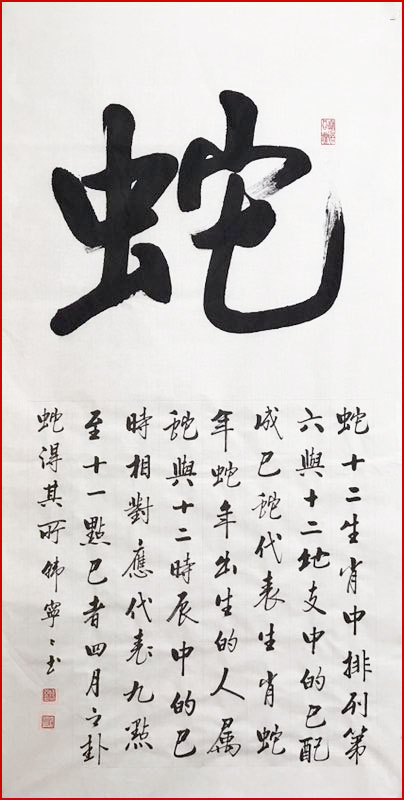 蛇
蛇十二生肖中排列第
六與十二地支中的巳配
成巳蛇代表生肖蛇
年蛇年出生的人属
蛇與十二時辰中的巳
時相對應代表九點
至十一點巳者四月之卦
蛇得其所韩寧〻书